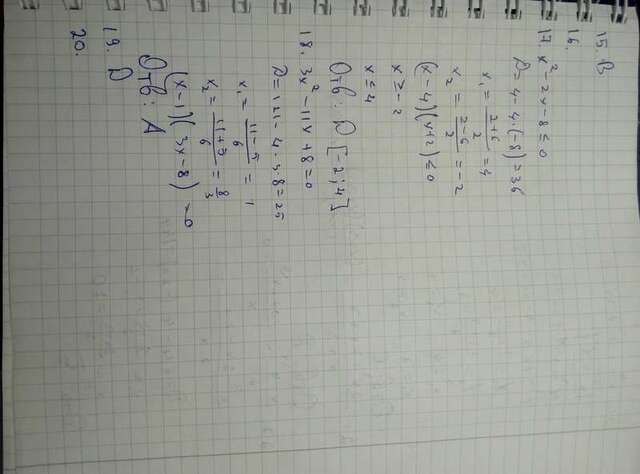 15. В
16.
17. x² - 2x - 8 ≤ 0
D = 4 - 4 · (-8) = 36
x₁ = (2+6)/2 = 4
x₂ = (2-6)/2 = -2
(x - 4)(x + 2) ≤ 0
x ≥ -2
x ≤ 4
Отв: D [-2; 4]
18. 3x² - 11x + 8 = 0
D = 121 - 4 · 3 · 8 = 25
x₁ = (11-5)/6 = 1
x₂ = (11+5)/6 = 8/3
(x - 1)(3x - 8) = 0
Отв: А
19. D
20.